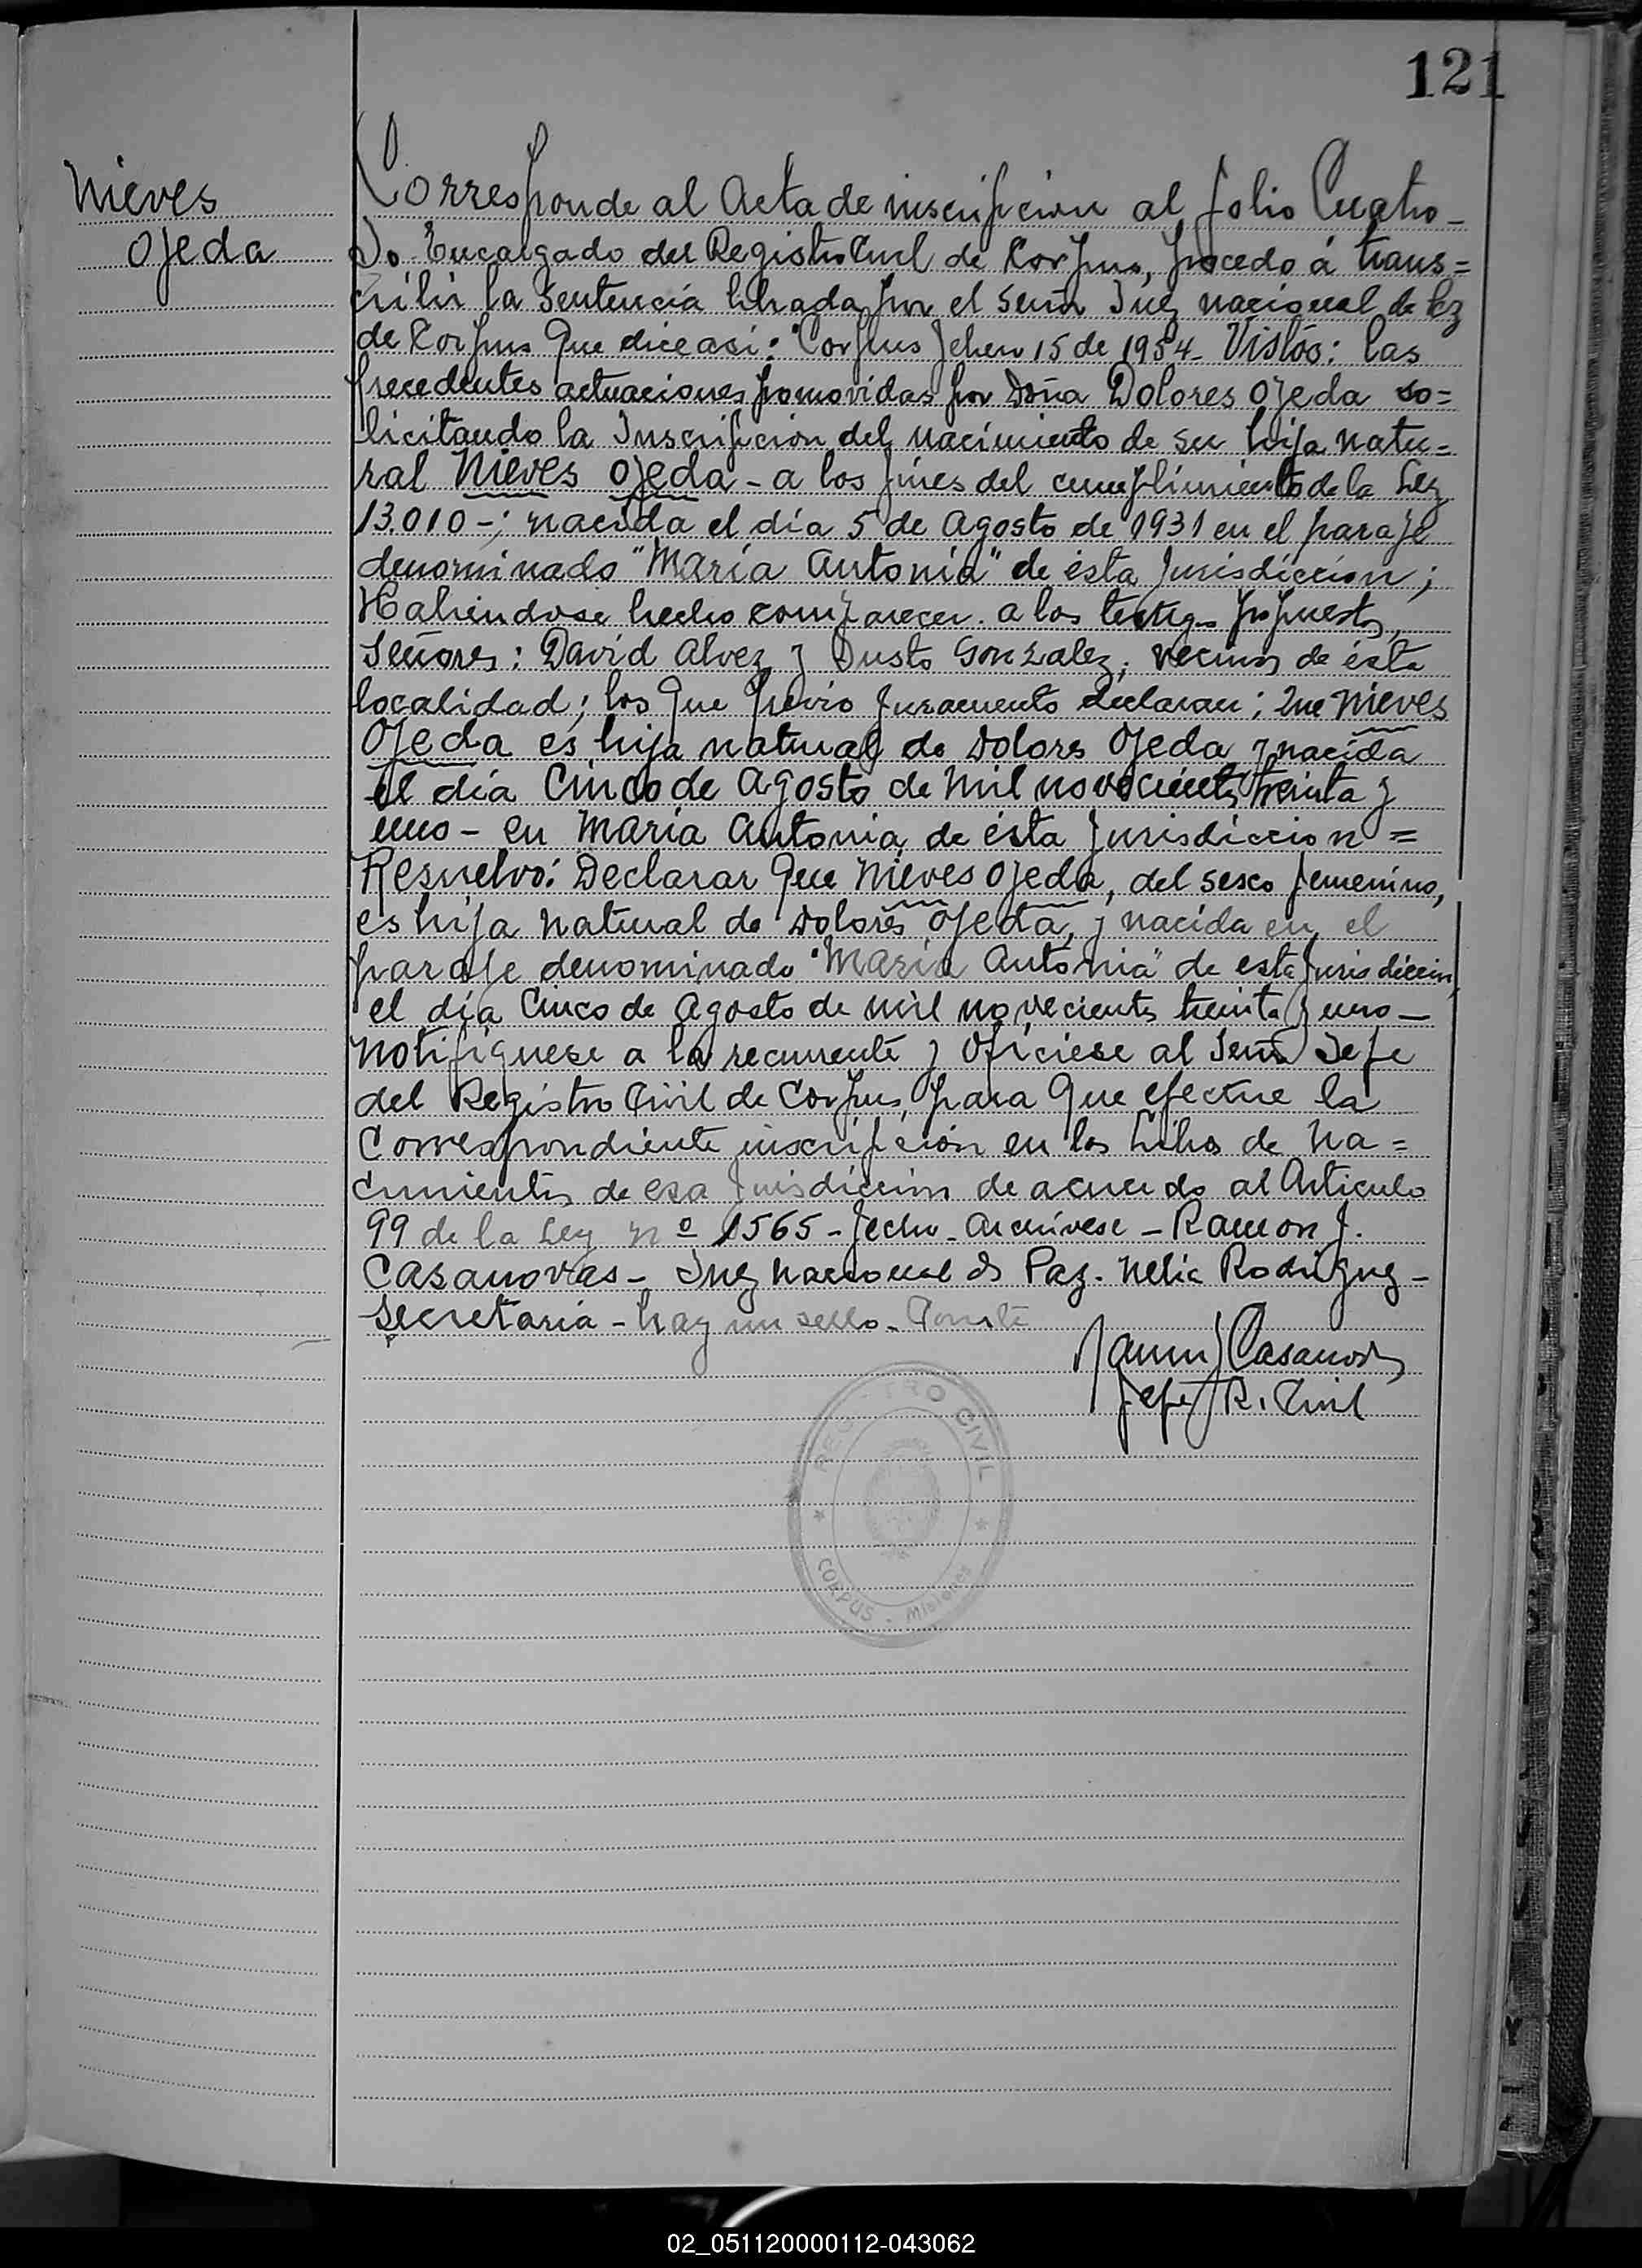 121
Nieves
Ojeda
Corresponde al Acta de inscripcion al folio Cuatro_
Yo Encargado del Registro Civil de Corpus, procedo á trans=
cribir la sentencia librada por el Señor Juez nacional de Paz
de Corpus que dice asi: "Corpus Febero 15 de 1954_ Vistos: las
precedentes actuaciones promovidas por Doña Dolores Ojeda so=
licitando la Inscripcion del nacimiento de su hija natu=
ral Nieves Ojeda - a los fines del cumplimiento de la Ley
13.010 -; nacida el día 5 de Agosto de 1931 en el paraje
denominado "María Antonia" de ésta Jurisdiccion;
Habiendose hecho comparecer a los testigos propuestos,
Señores: David Alvez y Justo Gonzalez, vecinos de ésta
localidad; los que previo juramento declaran; que Nieves
Ojeda es hija natural de Dolores Ojeda y nacida
el día Cinco de Agosto de mil novecientos treinta y
uno - en Maria Antonia de ésta Jurisdiccion =
Resuelvo: Declarar que Nieves Ojeda, del sexo femenino,
es hija natural de Dolores Ojeda, y nacida en el
paraje denominado "Maria Antonia" de esta Jurisdiccion,
el día Cinco de Agosto de mil novecientos treinta y uno —
Notifiquese a la recurrente y Ofíciese al Señor Jefe
del Registro Civil de Corpus, para que efectue la
Correspondiente inscripción en los Libros de Na=
cimientos de esa Jurisdiccion de acuerdo al Articulo
99 de la Ley nº 1565 - fecho - Archívese - Ramon J.
Casanovas - Juez Nacional de Paz. Nelia Rodriguez -
Secretaria - hay un sello - Conste
Ramon J Casanovas
Jefe R. Civil
REGISTRO CIVIL
CORPUS - Misiones
02_051120000112-043062